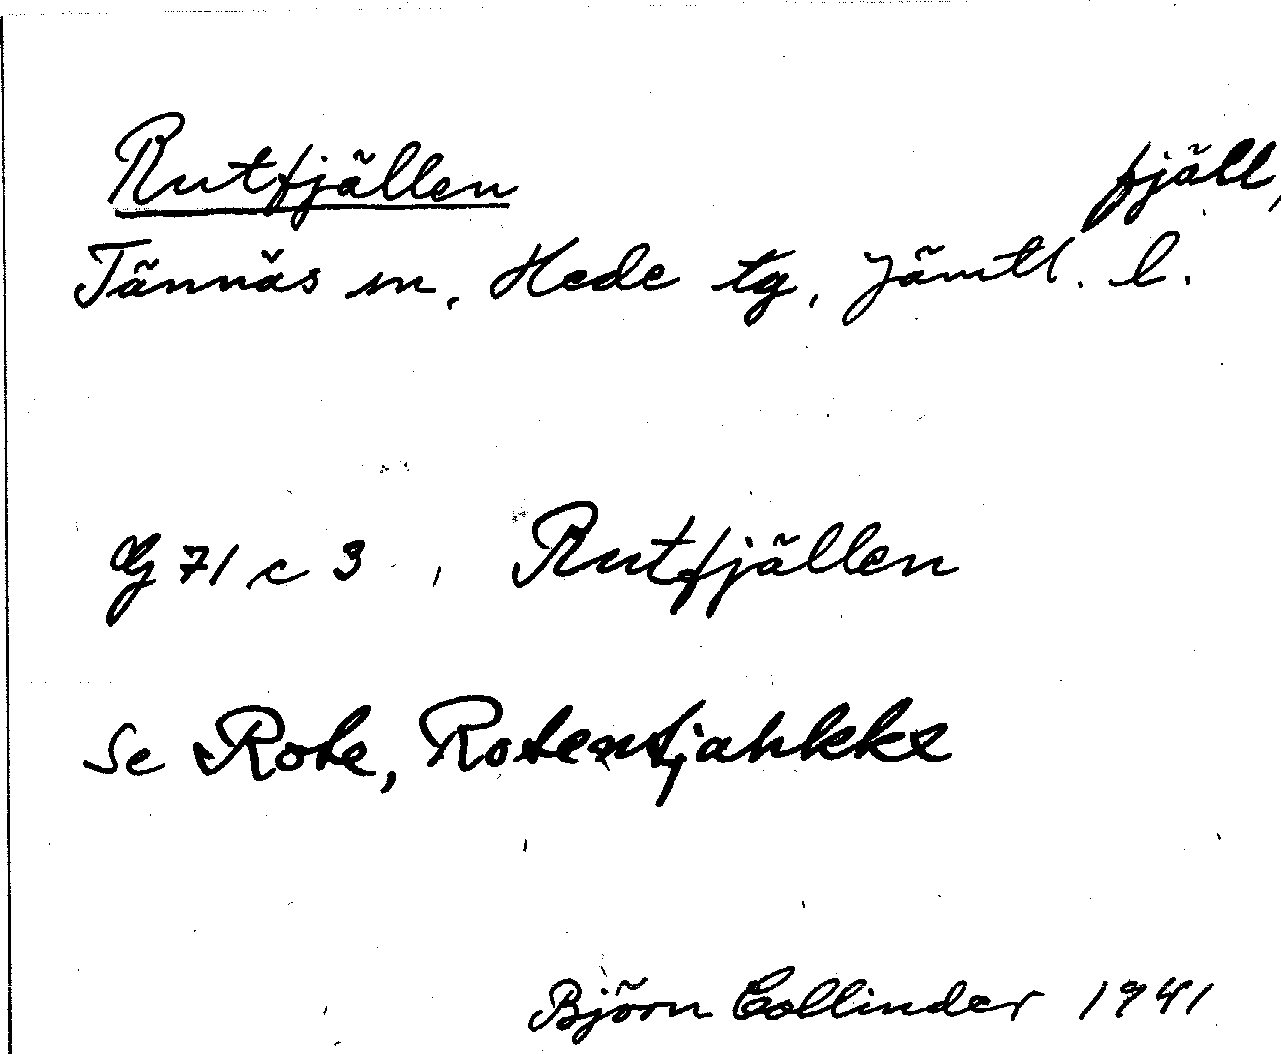 Rutfjällen fjäll,
Tännäs sn, Hede tg, Jämtl. l.
G 71 c 3, Rutfjällen
Se Rote, Rotentjahkke
Björn Collinder 1941